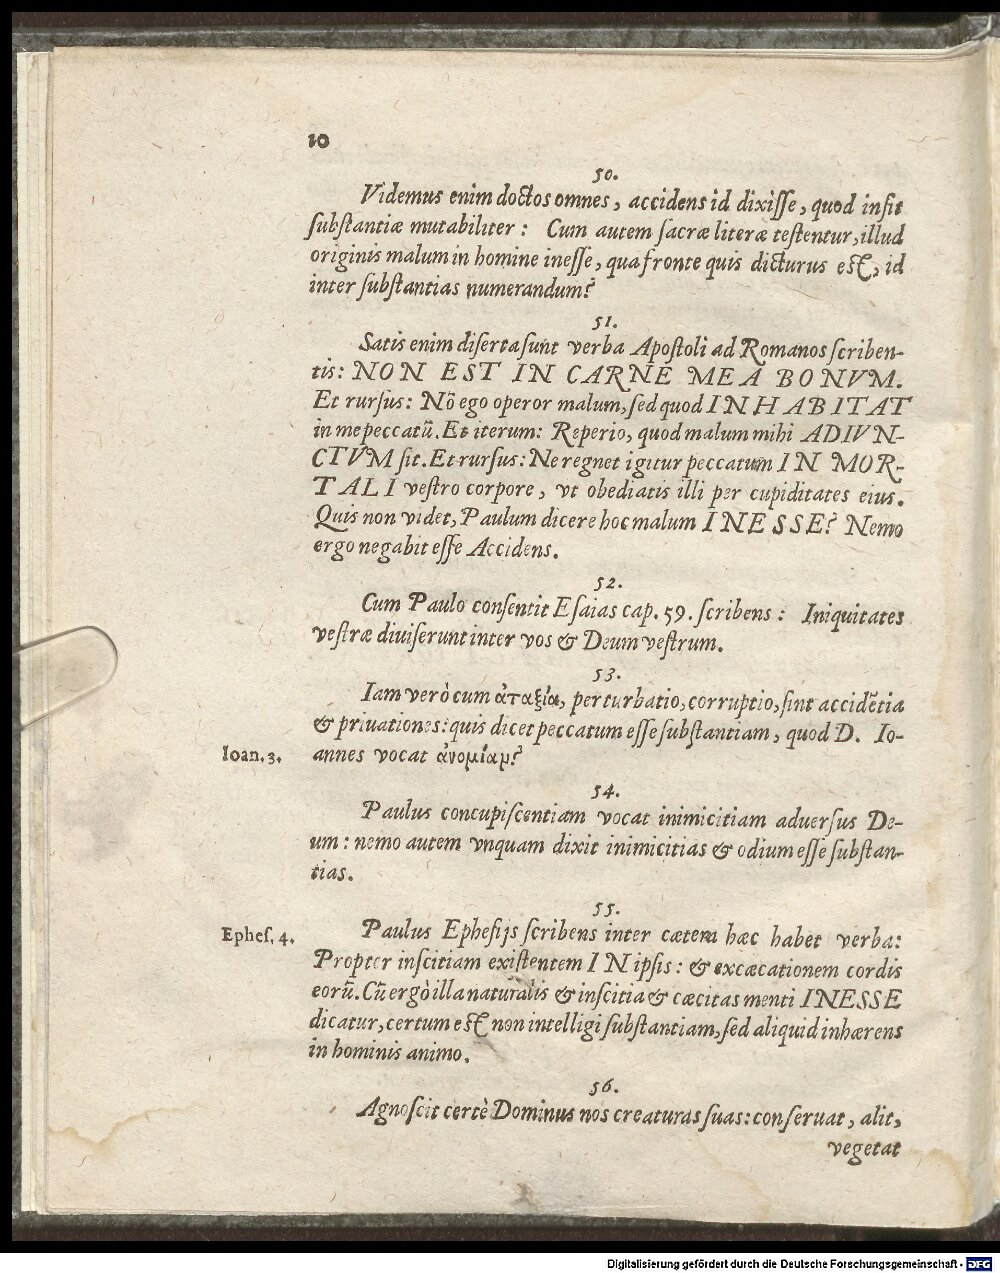 10
50.
Videmus enim doctos omnes, accidens id dixiſſe, quod inſit
ſubſtantiæ mutabiliter: Cum autem ſacræ literæ teſtentur, illud
originis malum in homine ineſſe, qua fronte quis dicturus eſt, id
inter ſubſtantias numerandum?
51.
Satis enim diſerta ſunt verba Apoſtoli ad Romanos ſcriben-
tis: NON EST IN CARNE MEA BONVM.
Et rurſus: Nō ego operor malum, ſed quod INHABITAT
in me peccatū. Et iterum: Reperio, quod malum mihi ADIVN-
CTVM ſit. Et rurſus: Ne regnet igitur peccatum IN MOR-
TALI veſtro corpore, vt obediatis illi per cupiditates eius.
Quis non videt, Paulum dicere hoc malum INESSE? Nemo
ergo negabit eſſe Accidens.
52.
Cum Paulo conſentit Eſaias cap. 59. ſcribens: Iniquitates
veſtræ diuiſerunt inter vos & Deum veſtrum.
53.
Iam verò cum ἀταξία, perturbatio, corruptio, ſint accidētia
& priuationes: quis dicet peccatum eſſe ſubſtantiam, quod D. Io-
Ioan. 3. annes vocat ἀνομίαμ?
54.
Paulus concupiſcentiam vocat inimicitiam aduerſus De-
um: nemo autem vnquam dixit inimicitias & odium eſſe ſubſtan-
tias.
55.
Epheſ. 4. Paulus Epheſijs ſcribens inter cætera hæc habet verba:
Propter inſcitiam exiſtentem IN ipſis: & excæcationem cordis
eorū. Cū ergò illa naturalis & inſcitia & cæcitas menti INESSE
dicatur, certum eſt non intelligi ſubſtantiam, ſed aliquid inhærens
in hominis animo.
56.
Agnoſcit certè Dominus nos creaturas ſuas: conſeruat, alit,
vegetat
Digitalisierung gefördert durch die Deutsche Forschungsgemeinschaft - DFG